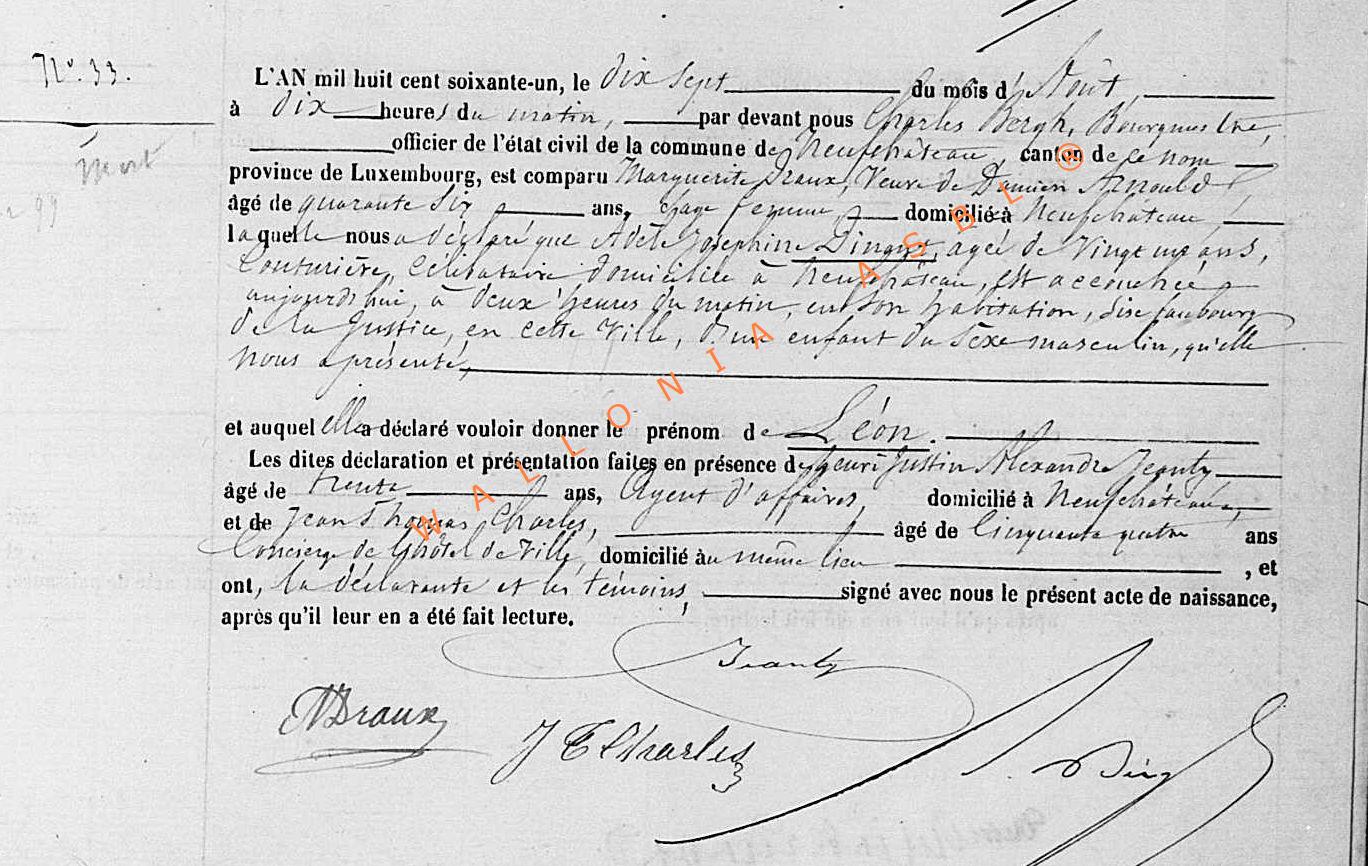 N.° 33.
L'AN mil huit cent soixante-un, le dix sept du mois d'Août,
à dix heures du matin, par devant nous Charles Bergh, Bourgmestre,
officier de l'état civil de la commune de Neufchâteau, canton de ce nom
province de Luxembourg, est comparu Marguerite Draux, Veuve de Damien Arnould
âgé de quarante six ans, sage femme, domicilié à Neufchâteau
laquelle nous a déclaré que Adèle Josephine, agée de Vingt un ans,
Couturière, Célibataire domiciliée à Neufchâteau, est accouchée
aujourd'hui, à deux heures du matin, en son habitation, dise faubourg
de la Justice, en cette Ville, d'un enfant du Sexe masculin, qu'elle
nous a présenté,
et auquel elle a déclaré vouloir donner le prénom de Léon.
Les dites déclaration et présentation faites en présence de Henri Justin Alexandre Jeanty
âgé de trente ans, Agent d'affaires, domicilié à Neufchâteau,
et de Jean Thomas Charles, âgé de Cinquante quatre ans
Concierge de l'hôtel de Ville, domicilié au même lieu, et
ont, la déclarante et les témoins, signé avec nous le présent acte de naissance,
après qu'il leur en a été fait lecture.
Jeanty
MDraux
J T Charles
mort
99
WALLONIA ASBL ®